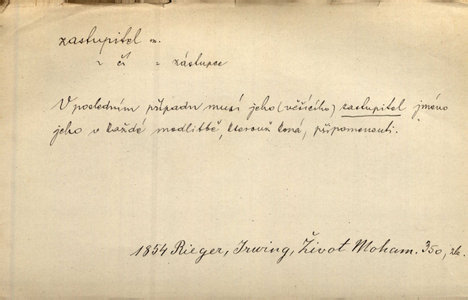 zastupitel m.
" čí " zástupce
V posledním případu musí jeho (věřícího) zastupitel jméno
jeho v každé modlitbě, kterouž koná, připomenouti.
1854 Rieger, Irwing, Život Moham. 350,